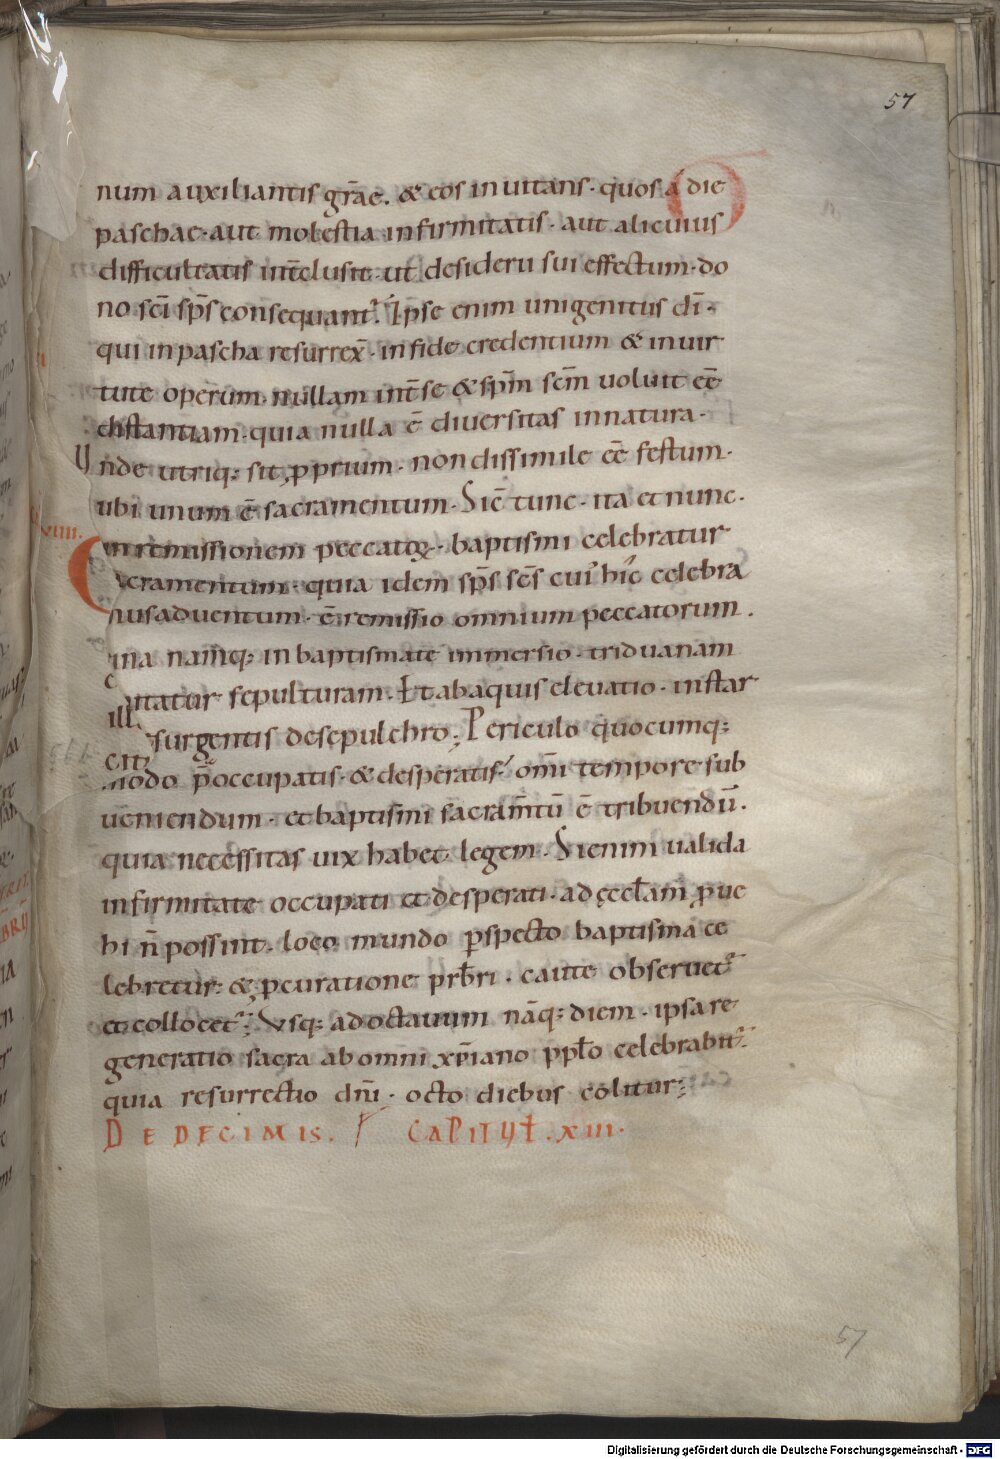 57
num auxiliantis gr̄ae. & eos inuitans. quos a die
paschae. aut molestia infirmitatis. aut alicuius
difficultatis int̄clusit. ut desiderii sui effectum. do
no sc̄i sp̄s consequant̄. Ipse enim unigenitus dī.
qui in pascha resurrex̄. in fide credentium & in uir
tute operum. nullam int̄ se & sp̄m sc̄m uoluit eē
distantiam. quia nulla ē diuersitas in natura.
Unde utriq; sit ꝓprium. non dissimile eē festum.
ubi unum ē sacramentum. Sic̄ tunc. ita et nunc.
uiii.
in remissionem peccatoꝝ. baptismi celebratur
cramentum. quia idem sp̄s sc̄s cui' hic celebra
tus aduentum. ē remissio omnium peccatorum.
ina namq; in baptismate immersio. triduanam
itatur sepulturam. Et ab aquis eleuatio. instar
surgentis de sepulchro; Periculo quocumq;
modo p̄occupatis. & desperatis. om̄i tempore sub
ueniendum. et baptismi sacram̄tū ē tribuendū.
quia necessitas uix habet legem. Si enim ualida
infirmitate occupati et desperati. ad ęccl̄am ꝓue
hi n̄ possint. loco mundo ꝑspecto baptisma ce
lebretur. & ꝓcuratione prb̄ri. caute obseruet̄
et collocet̄. Usq; ad octauum nāq; diem. ipsa re
generatio sacra ab omni xp̄iano ppl̄o celebrabit̄.
quia resurrectio dn̄i. octo diebus colitur;
DE DECIMIS. CAPITUL̄. xiii.
57
Digitalisierung gefördert durch die Deutsche Forschungsgemeinschaft - DFG